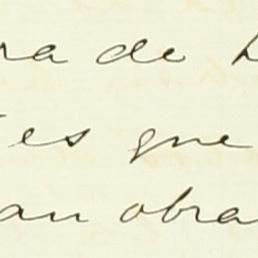 ra de
es que
an obra